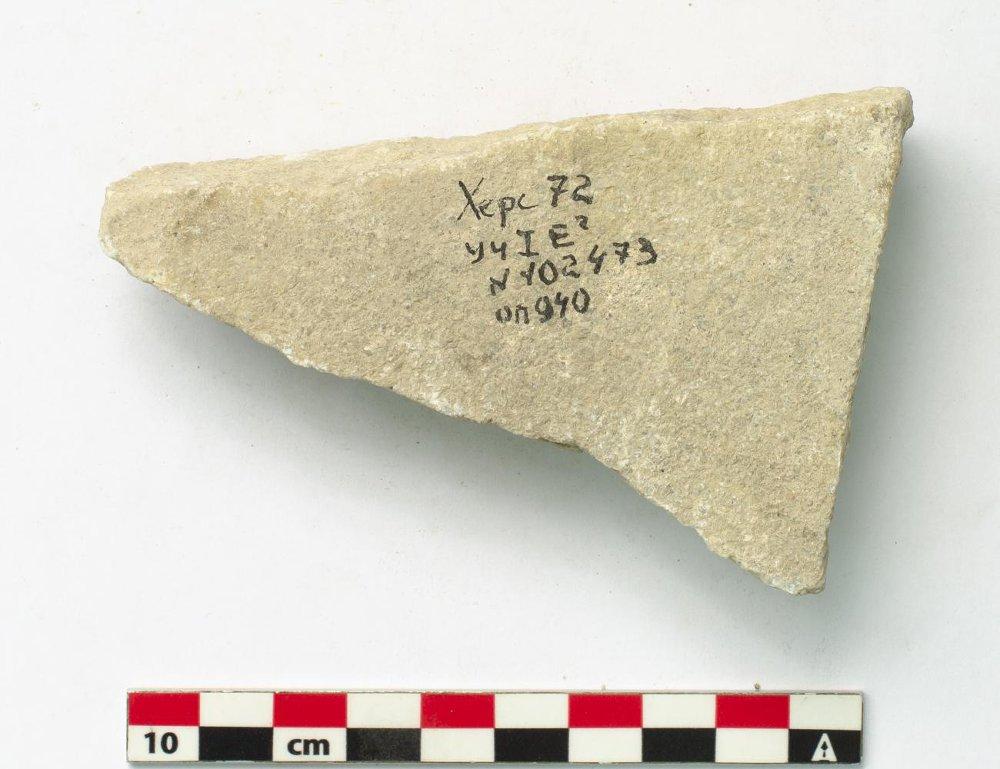 Херс 72
уч I E²
N 102473
оп 940
10 cm
A